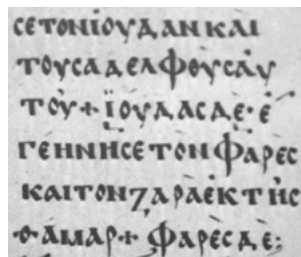 σετονϊούδανκαι
τουσαδελφοὺσἀυ
τοῦ+ϊούδασδὲ·ἐ
γέννησετονφαρὲσ
καιτονζαρὰἐκτῆσ
θάμαρ+φαρὲσδὲ;